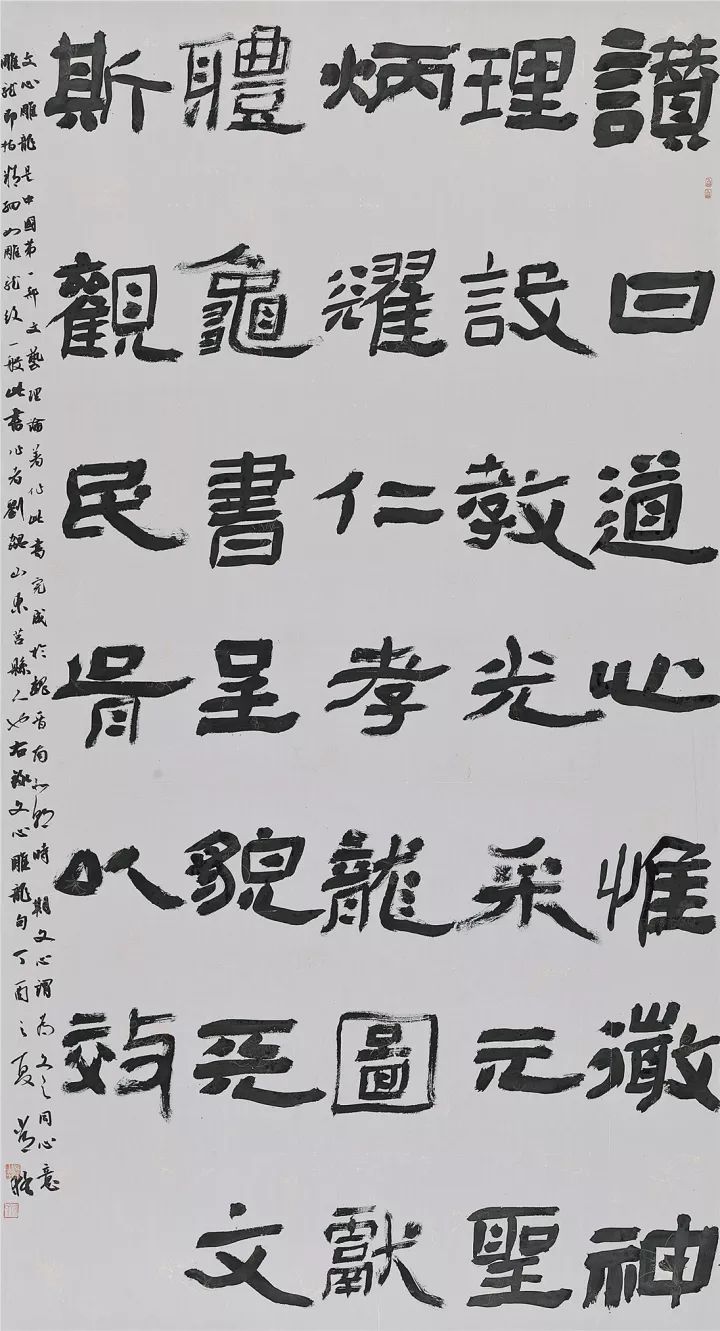 讚曰道心惟微神
理設教光采元聖
炳耀仁孝龍圖獻
體龜書呈貌天文
斯觀民胥以效
文心雕龍是中國第一部文藝理論著作此書完成於魏晉南北朝時期文心謂為文之同心意
雕龍即指精細如雕龍紋一般此書作者劉勰山東莒縣人也右錄文心雕龍句丁酉之夏